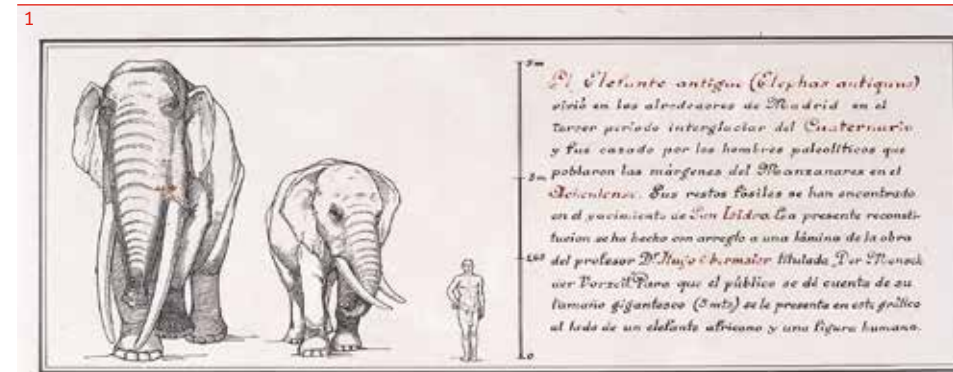 1
5 m
El Elefante antiguo (Elephas antiquus)
vivió en los alrededores de Madrid en el
Tercer período interglaciar del Cuaternario
y fue cazado por los hombres paleolíticos que
poblaron las márgenes del Manzanares en el
Acheulense. Sus restos fósiles se han encontrado
en el yacimiento de San Isidro. La presente reconsti-
tucion se ha hecho con arreglo a una lámina de la obra
del profesor Dr. Hugo Obermaier titulada, Der Mensch
der Vorzeit. Para que el público se dé cuenta de su
tamaño gigantesco (5 mts) se le presenta en este gráfico
al lado de un elefante africano y una figura humana.
3 m
1,60
0